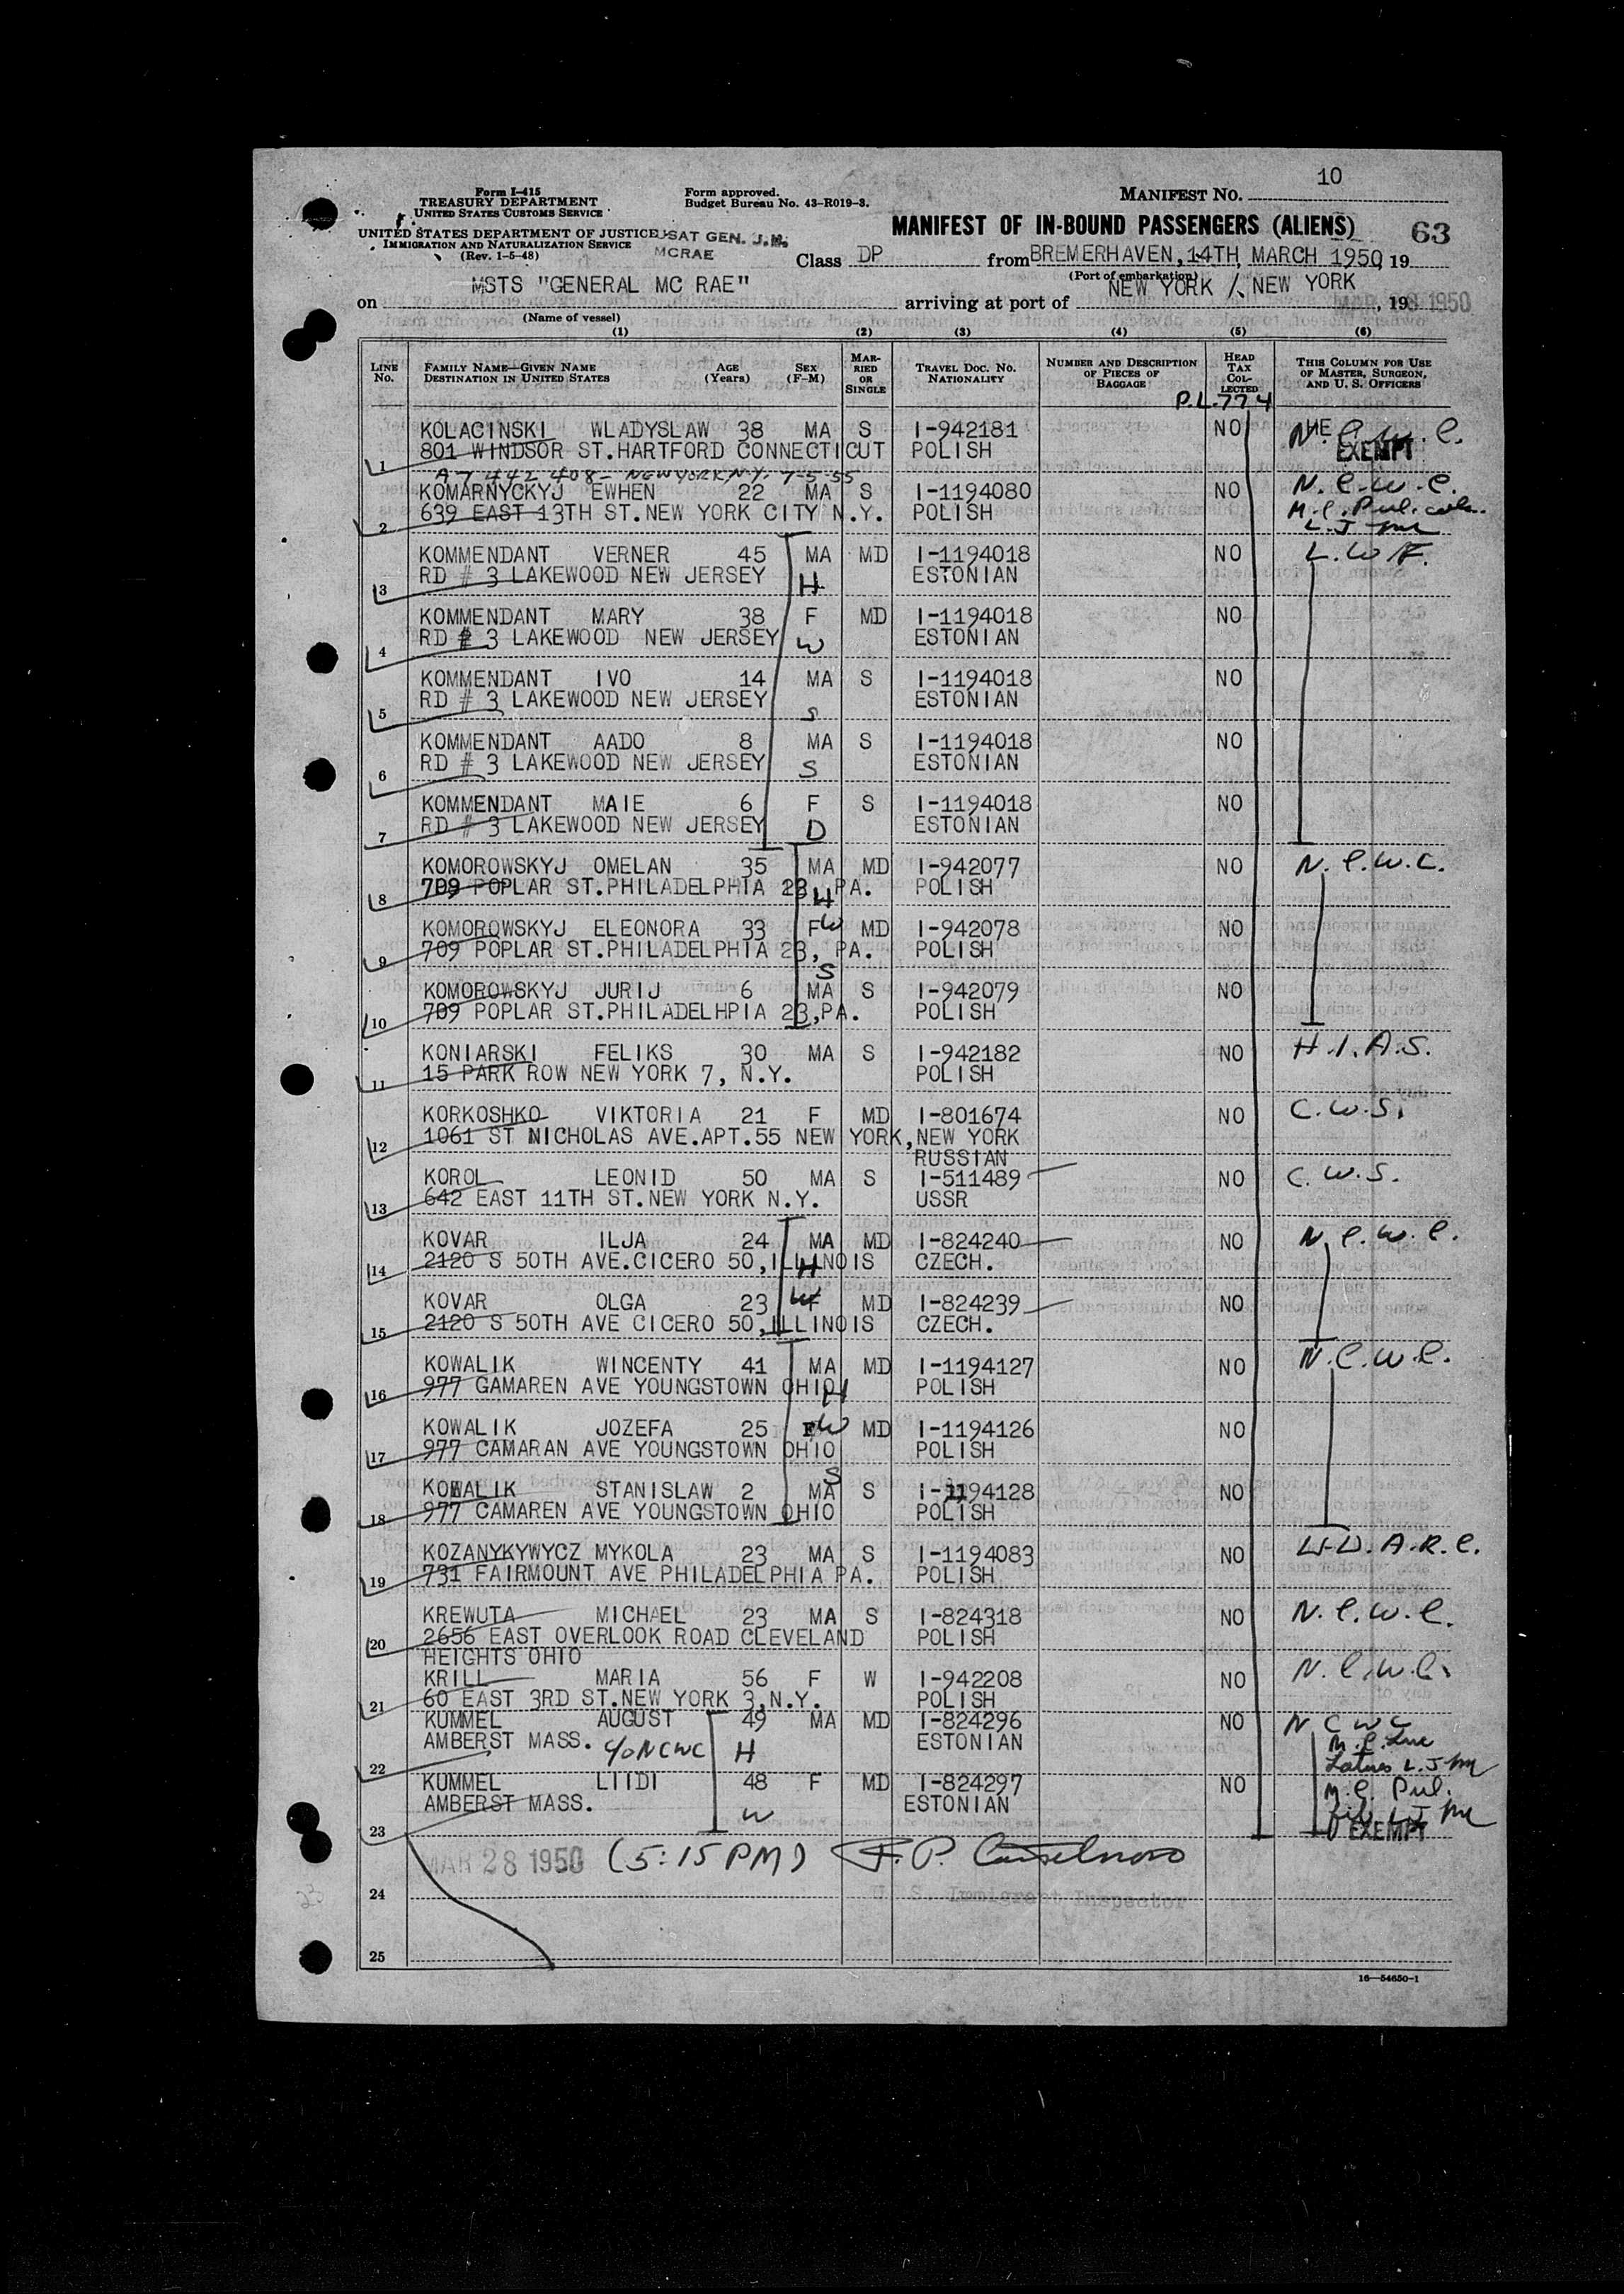 10
Form I-415
TREASURY DEPARTMENT
UNITED STATES CUSTOMS SERVICE
Form approved.
Budget Bureau No. 43-R019-3.
MANIFEST NO.
UNITED STATES DEPARTMENT OF JUSTICE
IMMIGRATION AND NATURALIZATION SERVICE
(Rev. 1-5-48)
USAT GEN. J.H.
MCRAE
MANIFEST OF IN-BOUND PASSENGERS (ALIENS) 63
Class DP from BREMERHAVEN, 14TH, MARCH 1950, 19
(Port of embarkation)
on MSTS "GENERAL MC RAE" arriving at port of NEW YORK, NEW YORK, 19 1950
(Name of vessel)
(1) (2) (3) (4) (5) (6)
LINE No. FAMILY NAME—GIVEN NAME DESTINATION IN UNITED STATES AGE (Years) SEX (F-M) MARRIED OR SINGLE TRAVEL DOC. NO. NATIONALITY NUMBER AND DESCRIPTION OF PIECES OF BAGGAGE HEAD TAX COLLECTED THIS COLUMN FOR USE OF MASTER, SURGEON, AND U. S. OFFICERS
P.L. 774
KOLACINSKI WLADYSLAW 38 MA S I-942181 NO N.C.W.C.
1 801 WINDSOR ST.HARTFORD CONNECTICUT POLISH EXEMPT
A7 442 408- NEW YORK N.Y. 7-5-55
KOMARNYCKYJ EWHEN 22 MA S I-1194080 NO N.C.W.C.
2 639 EAST 13TH ST.NEW YORK CITY N.Y. POLISH
KOMMENDANT VERNER 45 MA MD I-1194018 NO L.W.F.
3 RD # 3 LAKEWOOD NEW JERSEY H ESTONIAN
KOMMENDANT MARY 38 F MD I-1194018 NO
4 RD # 3 LAKEWOOD NEW JERSEY W ESTONIAN
KOMMENDANT IVO 14 MA S I-1194018 NO
5 RD # 3 LAKEWOOD NEW JERSEY S ESTONIAN
KOMMENDANT AADO 8 MA S I-1194018 NO
6 RD # 3 LAKEWOOD NEW JERSEY S ESTONIAN
KOMMENDANT MAIE 6 F S I-1194018 NO
7 RD # 3 LAKEWOOD NEW JERSEY D ESTONIAN
KOMOROWSKYJ OMELAN 35 MA MD I-942077 NO N.C.W.C.
8 709 POPLAR ST.PHILADELPHIA 23, PA. H POLISH
KOMOROWSKYJ ELEONORA 33 F W MD I-942078 NO
9 709 POPLAR ST.PHILADELPHIA 23, PA. POLISH
S
KOMOROWSKYJ JURIJ 6 MA S I-942079 NO
10 709 POPLAR ST.PHILADELHPIA 23,PA. POLISH
KONIARSKI FELIKS 30 MA S I-942182 NO H.I.A.S.
11 15 PARK ROW NEW YORK 7, N.Y. POLISH
KORKOSHKO VIKTORIA 21 F MD I-801674 NO C.W.S.
12 1061 ST NICHOLAS AVE.APT.55 NEW YORK,NEW YORK
RUSSIAN
KOROL LEONID 50 MA S I-511489 NO C.W.S.
13 642 EAST 11TH ST.NEW YORK N.Y. USSR
KOVAR ILJA 24 MA MD I-824240 NO N.C.W.C.
14 2120 S 50TH AVE.CICERO 50,ILLINOIS H CZECH.
KOVAR OLGA 23 W MD I-824239 NO
15 2120 S 50TH AVE CICERO 50,ILLINOIS CZECH.
KOWALIK WINCENTY 41 MA MD I-1194127 NO N.C.W.C.
16 977 GAMAREN AVE YOUNGSTOWN OHIO H POLISH
KOWALIK JOZEFA 25 F W MD I-1194126 NO
17 977 CAMARAN AVE YOUNGSTOWN OHIO POLISH
S
KOWALIK STANISLAW 2 MA S I-1194128 NO
18 977 CAMAREN AVE YOUNGSTOWN OHIO POLISH
KOZANYKYWYCZ MYKOLA 23 MA S I-1194083 NO U.U.A.R.C.
19 731 FAIRMOUNT AVE PHILADELPHIA PA. POLISH
KREWUTA MICHAEL 23 MA S I-824318 NO N.C.W.C.
20 2656 EAST OVERLOOK ROAD CLEVELAND POLISH
HEIGHTS OHIO
KRILL MARIA 56 F W I-942208 NO N.C.W.C.
21 60 EAST 3RD ST.NEW YORK 3,N.Y. POLISH
KUMMEL AUGUST 49 MA MD I-824296 NO N C W C
22 AMBERST MASS. c/o NCWC H ESTONIAN
KUMMEL LIIDI 48 F MD I-824297 NO
23 AMBERST MASS. W ESTONIAN
EXEMPT
MAR 28 1950 (5:15 PM)
U. S. Immigrant Inspector
24
25
16—54650-1